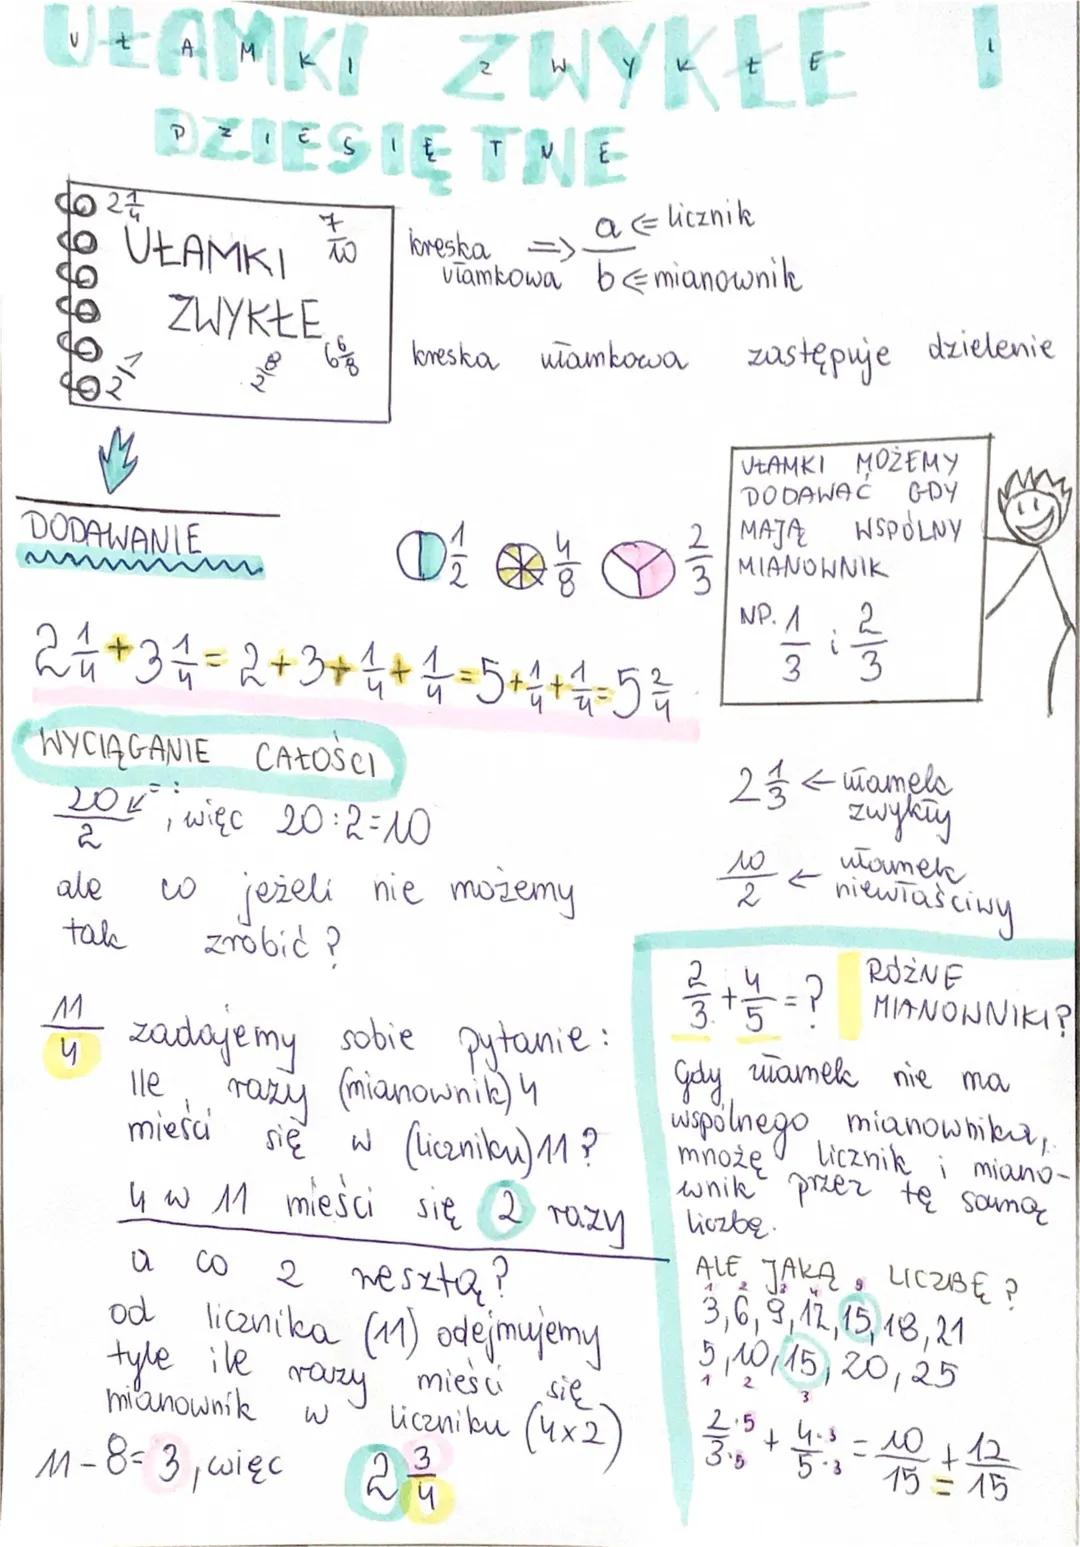 UŁAMKI ZWYKŁE I
DZIESIĘTNE
2 1/4
7/10
UŁAMKI
ZWYKŁE
2/1
2/8
6 6/8
kreska ułamkowa => a/b
a <= licznik
b <= mianownik
kreska ułamkowa zastępuje dzielenie
DODAWANIE
1/2 4/8 2/3
UŁAMKI MOŻEMY
DODAWAĆ GDY
MAJĄ WSPÓLNY
MIANOWNIK
NP. 1/3 i 2/3
2 1/4 + 3 1/4 = 2+3+1/4+1/4=5+1/4+1/4=5 2/4
WYCIĄGANIE CAŁOŚCI
20/2 ↙ = : , więc 20:2=10
ale co jeżeli nie możemy
tak zrobić?
2 1/3 ← ułamek
zwykły
10/2 ← ułamek
niewłaściwy
11/4 zadajemy sobie pytanie:
Ile razy (mianownik) 4
mieści się w (liczniku) 11?
4 w 11 mieści się 2 razy
a co z resztą?
od licznika (11) odejmujemy
tyle ile razy mieści się
mianownik w liczniku (4x2)
11-8=3, więc 2 3/4
2/3 + 4/5 = ?
RÓŻNE
MIANOWNIKI?
Gdy ułamek nie ma
wspólnego mianownika,
mnożę licznik i miano-
wnik przez tę samą
liczbę.
ALE JAKĄ LICZBĘ?
1 2 3 4 5
3,6,9,12,15,18,21
5,10,15,20,25
1 2 3
2·5/3·5 + 4·3/5·3 = 10/15 + 12/15
=